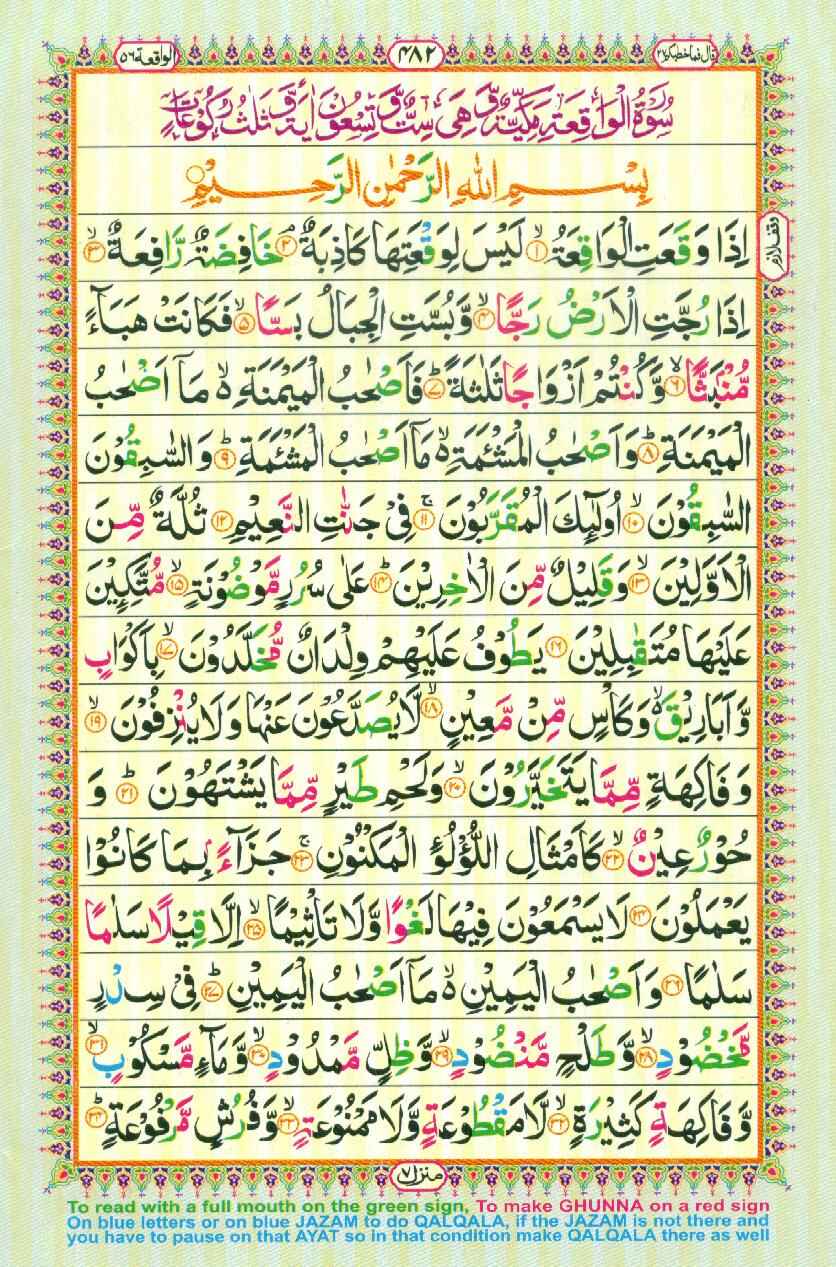 قال فما خطبکم ۲۷
۴۸۲
الواقعة ۵۶
سُوْرَةُ الْوَاقِعَةِ مَكِّيَّةٌ وَّهِیَ سِتٌّ وَّتِسْعُوْنَ اٰیَةً وَّثَلٰثُ رُكُوْعَاتٍ
بِسْمِ اللّٰهِ الرَّحْمٰنِ الرَّحِیْمِ
وقف لازم
اِذَا وَقَعَتِ الْوَاقِعَةُۙ۱ لَیْسَ لِوَقْعَتِهَا كَاذِبَةٌۘ۲ خَافِضَةٌ رَّافِعَةٌۙ۳
اِذَا رُجَّتِ الْاَرْضُ رَجًّاۙ۴ وَّبُسَّتِ الْجِبَالُ بَسًّاۙ۵ فَكَانَتْ هَبَآءً
مُّنْۢبَثًّاۙ۶ وَّكُنْتُمْ اَزْوَاجًا ثَلٰثَةًؕ۷ فَاَصْحٰبُ الْمَیْمَنَةِ ۙ۬ مَاۤ اَصْحٰبُ
الْمَیْمَنَةِؕ۸ وَاَصْحٰبُ الْمَشْـَٔمَةِ ۙ۬ مَاۤ اَصْحٰبُ الْمَشْـَٔمَةِؕ۹ وَالسّٰبِقُوْنَ
السّٰبِقُوْنَۙ۱۰ اُولٰٓىِٕكَ الْمُقَرَّبُوْنَۚ۱۱ فِیْ جَنّٰتِ النَّعِیْمِ۱۲ ثُلَّةٌ مِّنَ
الْاَوَّلِیْنَۙ۱۳ وَقَلِیْلٌ مِّنَ الْاٰخِرِیْنَؕ۱۴ عَلٰی سُرُرٍ مَّوْضُوْنَةٍۙ۱۵ مُّتَّكِـِٕیْنَ
عَلَیْهَا مُتَقٰبِلِیْنَ۱۶ یَطُوْفُ عَلَیْهِمْ وِلْدَانٌ مُّخَلَّدُوْنَۙ۱۷ بِاَكْوَابٍ
وَّاَبَارِیْقَ ۙ۬ وَكَاْسٍ مِّنْ مَّعِیْنٍۙ۱۸ لَّا یُصَدَّعُوْنَ عَنْهَا وَلَا یُنْزِفُوْنَۙ۱۹
وَفَاكِهَةٍ مِّمَّا یَتَخَیَّرُوْنَۙ۲۰ وَلَحْمِ طَیْرٍ مِّمَّا یَشْتَهُوْنَؕ۲۱ وَ
حُوْرٌ عِیْنٌۙ۲۲ كَاَمْثَالِ اللُّؤْلُؤِ الْمَكْنُوْنِۚ۲۳ جَزَآءًۢ بِمَا كَانُوْا
یَعْمَلُوْنَ۲۴ لَا یَسْمَعُوْنَ فِیْهَا لَغْوًا وَّلَا تَاْثِیْمًاۙ۲۵ اِلَّا قِیْلًا سَلٰمًا
سَلٰمًا۲۶ وَاَصْحٰبُ الْیَمِیْنِ ۙ۬ مَاۤ اَصْحٰبُ الْیَمِیْنِؕ۲۷ فِیْ سِدْرٍ
مَّخْضُوْدٍۙ۲۸ وَّطَلْحٍ مَّنْضُوْدٍۙ۲۹ وَّظِلٍّ مَّمْدُوْدٍۙ۳۰ وَّمَآءٍ مَّسْكُوْبٍۙ۳۱
وَّفَاكِهَةٍ كَثِیْرَةٍۙ۳۲ لَّا مَقْطُوْعَةٍ وَّلَا مَمْنُوْعَةٍۙ۳۳ وَّفُرُشٍ مَّرْفُوْعَةٍؕ۳۴
منزل ۷
To read with a full mouth on the green sign, To make GHUNNA on a red sign
On blue letters or on blue JAZAM to do QALQALA, if the JAZAM is not there and
you have to pause on that AYAT so in that condition make QALQALA there as well